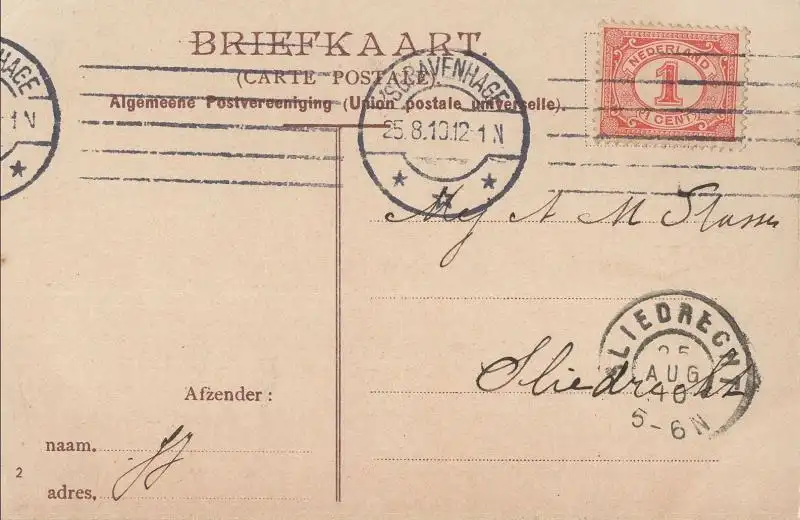 BRIEFKAART.
(CARTE POSTALE)
Algemeene Postvereeniging (Union postale universelle).
NEDERLAND
1
1 CENT
HAGE
1 N
'SGRAVENHAGE
25.8.10.12-1 N
Mej A M
SLIEDRECHT
25
AUG
10
5-6N
Sliedrecht
Afzender:
naam.
adres.
2